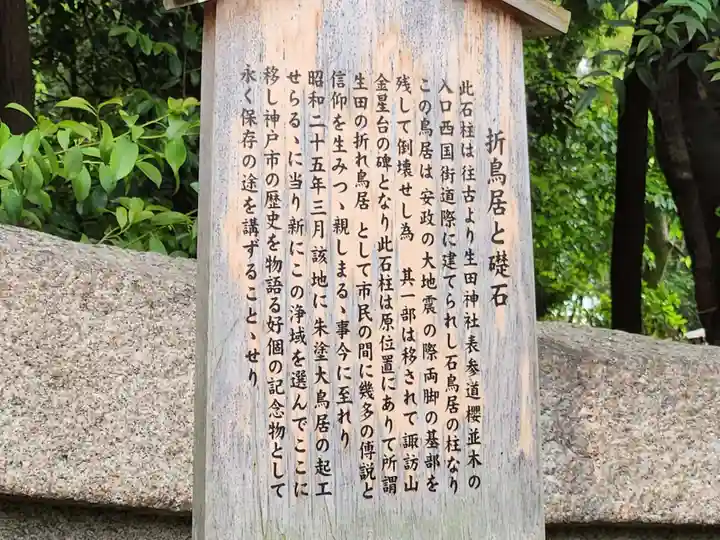 折鳥居と礎石
此石柱は往古より生田神社表参道櫻並木の
入口西国街道際に建てられし石鳥居の柱なり
この鳥居は 安政の大地震の際両脚の基部を
残して倒壊せし為 其一部は移されて諏訪山
金星台の碑となり此石柱は原位置にありて所謂
生田の折れ鳥居 として市民の間に幾多の傳説と
信仰を生みつゝ親しまるゝ事今に至れり
昭和二十五年三月該地に朱塗大鳥居の起工
せらるゝに当り新にこの浄域を選んでここに
移し神戸市の歴史を物語る好個の記念物として
永く保存の途を講ずることゝせり